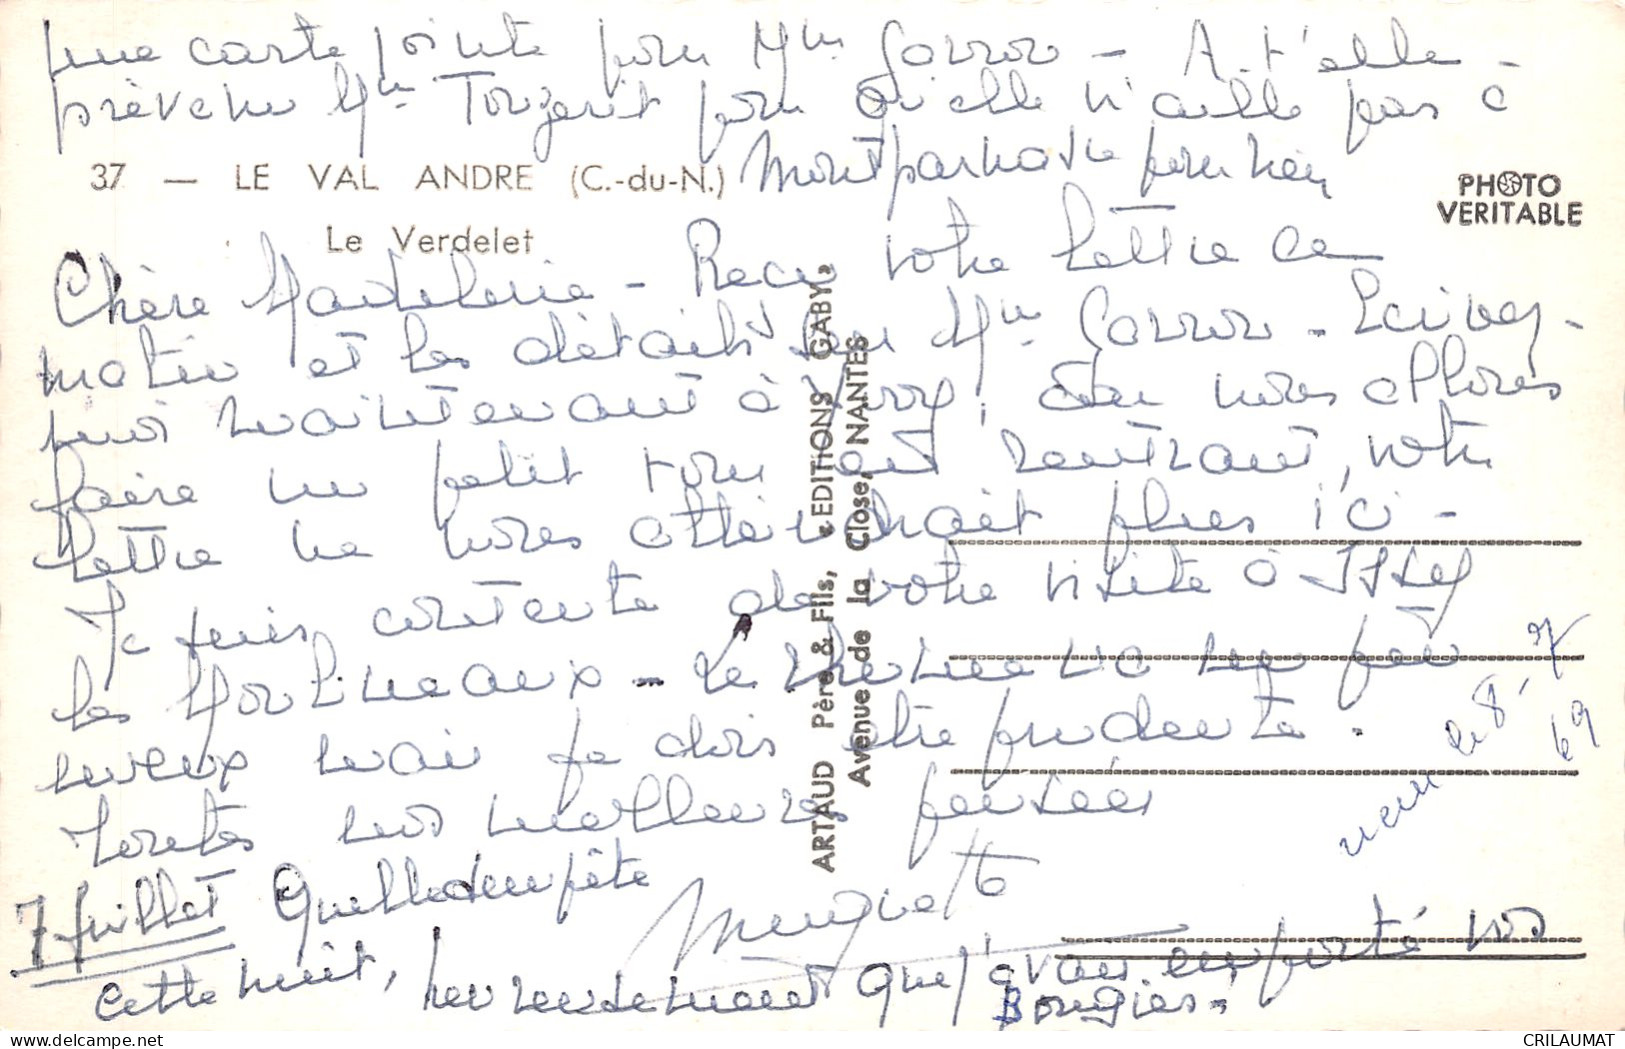 une carte jointe pour Mme Carror - A.t'elle -
prévenu Mme Tougerit pour qu'elle n'aille pas à
Montparnasse pour rien
37 — LE VAL ANDRE (C.-du-N.)
Le Verdelet
PHOTO
VERITABLE
Chère Madeleine - Reçu votre lettre ce
matin et les détails sur Mme Carror - Ecrivez-
moi maintenant à Issy, car nous allons
faire un petit tour en rentrant, votre
lettre ne nous atteindrait plus ici -
Je suis contente de votre visite à Issy
les Moulineaux - Le rhume va un peu
mieux mais je dois être prudente.
Toutes nos meilleures pensées
Huguette
7 Juillet Quelle tempête
cette nuit, heureusement que j'avais emporté nos
Bougies.
ARTAUD Père & Fils, « EDITIONS GABY »
Avenue de la Close, NANTES
le 8-7
69
CRILAUMAT